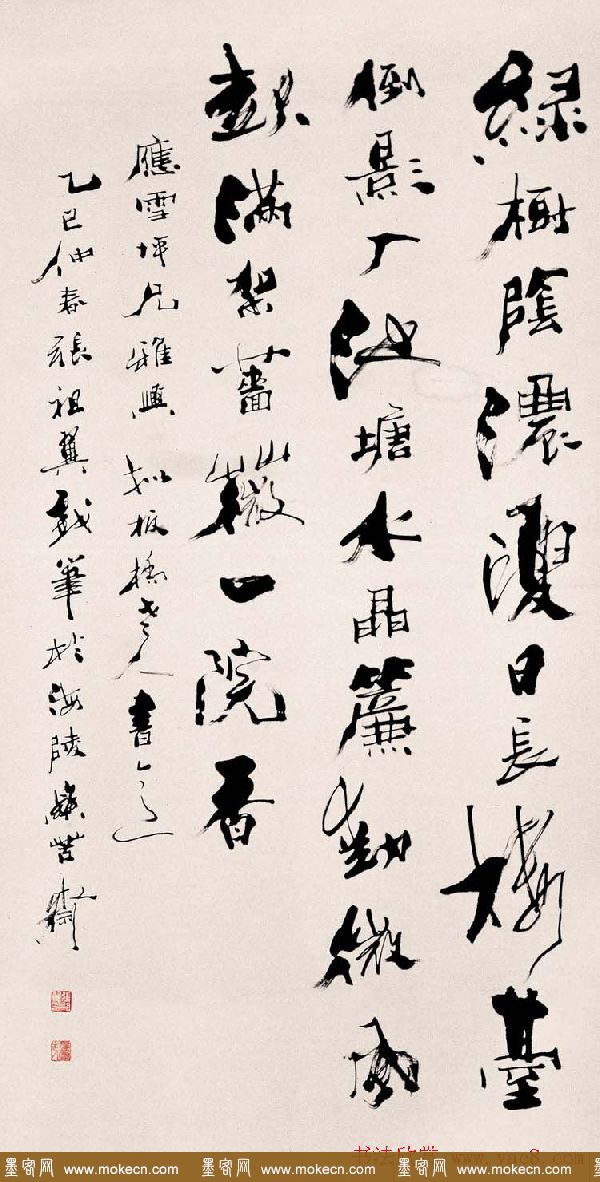 綠樹陰濃夏日長樓臺
倒影入池塘水晶簾動微風
起滿架薔薇一院香
應雪坪兄雅興 拟板橋老人書
乙巳仲春張祖翼戲筆於海陵苦齋
书法欣赏 www.yac8.com
墨客网 www.mokecn.com 墨客网 www.mokecn.com 墨客网 www.mokecn.com